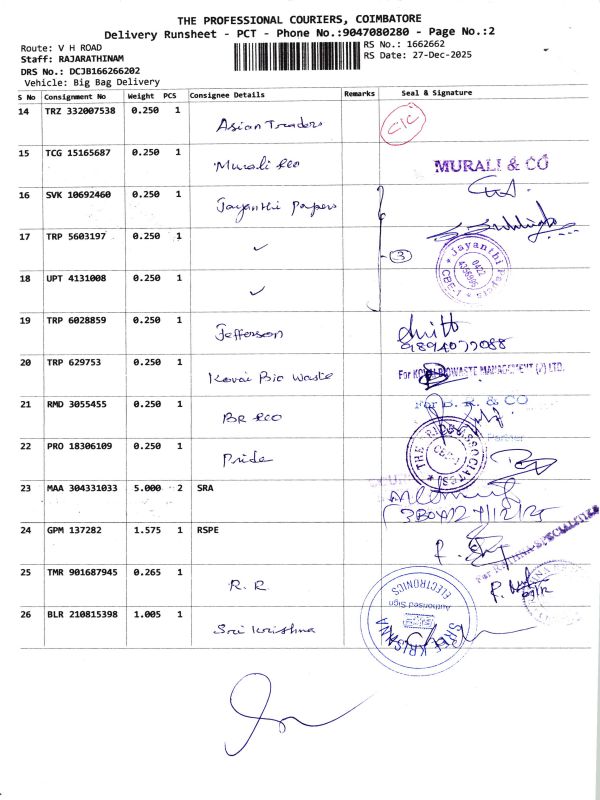 THE PROFESSIONAL COURIERS, COIMBATORE
Delivery Runsheet - PCT - Phone No.:9047080280 - Page No.:2
Route: V H ROAD
RS No.: 1662662
Staff: RAJARATHINAM
RS Date: 27-Dec-2025
DRS No.: DCJB166266202
Vehicle: Big Bag Delivery
S No Consignment No Weight PCS Consignee Details Remarks Seal & Signature
14 TRZ 332007538 0.250 1 Asian Traders C/C
15 TCG 15165687 0.250 1 Murali &co MURALI & CO
16 SVK 10692460 0.250 1 Jayanthi Papers
17 TRP 5603197 0.250 1 ✓ 3 Jayanthi Papers CBE-1 0422
18 UPT 4131008 0.250 1 ✓
19 TRP 6028859 0.250 1 Jefferson
9894077088
20 TRP 629753 0.250 1 Kovai Bio Waste For KOVAI BIOWASTE MANAGEMENT (P) LTD.
21 RMD 3055455 0.250 1 BR &co For B. R. & CO
Partner
22 PRO 18306109 0.250 1 Pride THE PRIDE ASSOCIATES CBE-1
23 MAA 304331033 5.000 2 SRA
27/12/25
24 GPM 137282 1.575 1 RSPE
25 TMR 901687945 0.265 1 R.R.
26 BLR 210815398 1.005 1 Sri Krishna SREE KRISHNA ELECTRONICS Authorised Sign